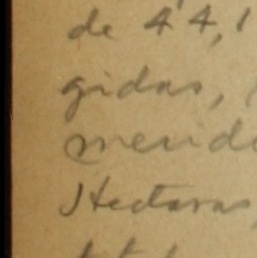 de 44,1
gidas,
merid
Hectaras